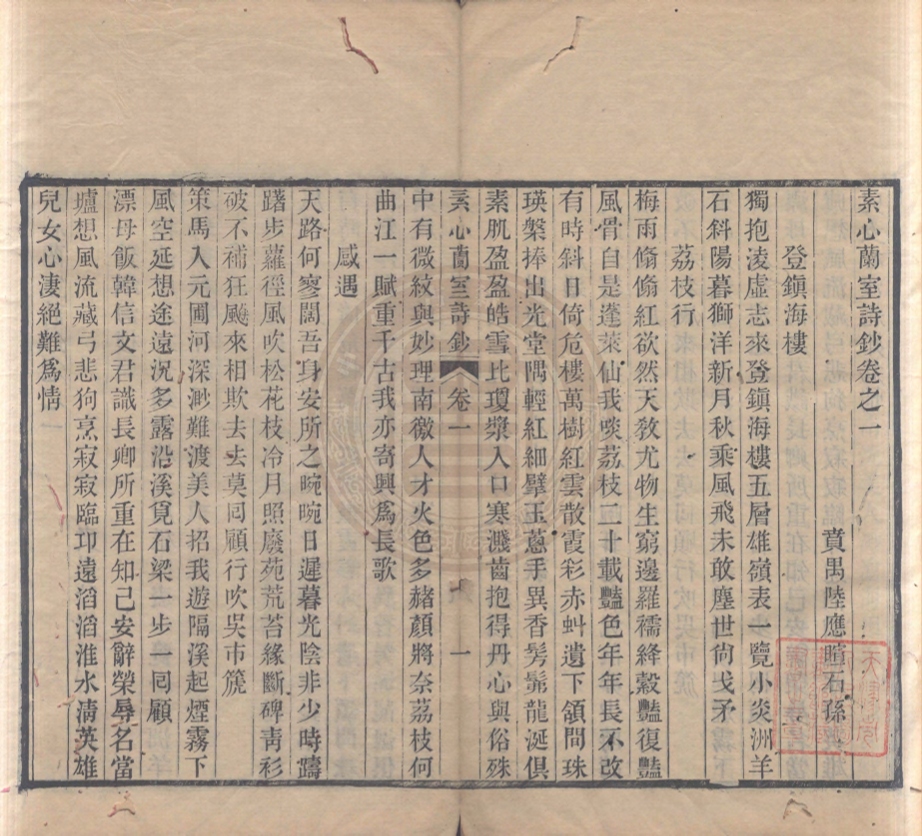 素心蘭室詩鈔卷之一
賁禺陸應暄石孫
登鎮海樓
獨抱凌虛志來登鎮海樓五層雄嶺表一覽小炎洲羊
石斜陽暮獅洋新月秋乘風飛未敢塵世尙戈矛
荔枝行
梅雨翛翛紅欲然天敎尤物生窮邊羅襦絳縠豔復豔
風骨自是蓬萊仙我啖荔枝二十載豔色年年長不改
有時斜日倚危樓萬樹紅雲散霞彩赤虯遺下頷問珠
瑛槃捧出光堂隅輕紅細擘玉蔥手異香髣髴龍涎俱
素肌盈盈皓雪比瓊漿入口寒濺齒抱得丹心與俗殊
素心蘭室詩鈔 卷一 一
中有微紋與妙理南徼人才火色多赭顏將奈荔枝何
曲江一賦重千古我亦寄興爲長歌
感遇
天路何寥闊吾身安所之晼晚日遲暮光陰非少時躊
躇步蘿徑風吹松花枝冷月照廢苑荒苔緣斷碑靑衫
破不補狂颷來相欺去去莫回顧行吹吳市篪
策馬入元圃河深渺難渡美人招我遊隔溪起煙霧下
風空延想途遠況多露沿溪覓石梁一步一囘顧
漂母飯韓信文君識長卿所重在知己安辭榮辱名當
壚想風流藏弓悲狗烹寂寂臨卭遠滔滔淮水淸英雄
兒女心淒絕難爲情